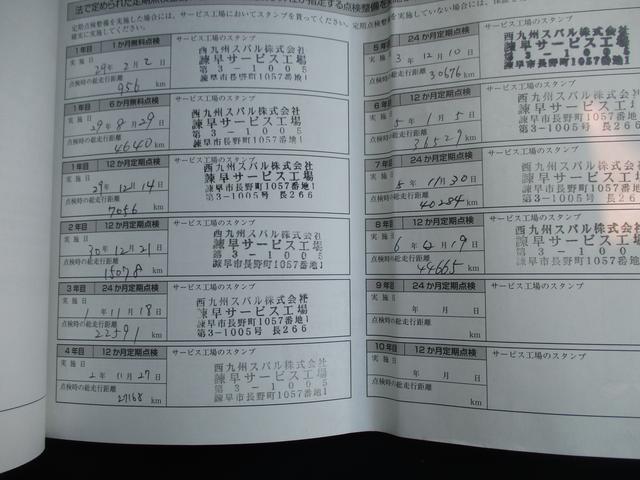 定期点検整備を実施した場合には、サービス工場においてスタンプを貰ってください。定期点検整
確実に実施してください。
1年目 1か月無料点検 サービス工場のスタンプ
実施日 29年2月2日
点検時の総走行距離
956 km
西九州スバル株式会社
諫早サービス工場
第3-1005
1年目 6か月無料点検 サービス工場のスタンプ
実施日 29年8月29日
点検時の総走行距離
4640 km
西九州スバル株式会社
諫早サービス工場
第3-1005
1年目 12か月定期点検 サービス工場のスタンプ
実施日 29年12月14日
点検時の総走行距離
7056 km
西九州スバル株式会社
諫早サービス工場
諫早市長野町1057番地1
第3-1005号 長266
2年目 12か月定期点検 サービス工場のスタンプ
実施日 30年12月21日
点検時の総走行距離
15078 km
西九州スバル株式会社
諫早サービス工場
第3-1005
諫早市長野町1057番地1
3年目 24か月定期点検 サービス工場のスタンプ
実施日 1年11月18日
点検時の総走行距離
22591 km
西九州スバル株式会社
諫早サービス工場
諫早市長野町1057番地1
第3-1005号 長266
4年目 12か月定期点検 サービス工場のスタンプ
実施日 2年11月27日
点検時の総走行距離
27168 km
西九州スバル株式会社
諫早サービス工場
第3-1005
諫早市長野町1057番地1
5年目 24か月定期点検
実施日 3年12月10日
点検時の総走行距離
30676 km
諫早サービス工場
諫早市長野町1057番地1
第3-1005号 長266
6年目 12か月定期点検 サービス工場のスタンプ
実施日 5年1月5日
点検時の総走行距離
36529 km
西九州スバル株式会社
諫早サービス工場
諫早市長野町1057番地1
第3-1005号 長266
7年目 24か月定期点検 サービス工場のスタンプ
実施日 5年11月30日
点検時の総走行距離
40284 km
西九州スバル株式会社
諫早サービス工場
諫早市長野町1057番地1
第3-1005号 長266
8年目 12か月定期点検 サービス工場のスタンプ
実施日 6年12月19日
点検時の総走行距離
44665 km
西九州スバル株式会社
諫早サービス工場
第3-1005
諫早市長野町1057番地1
9年目 24か月定期点検 サービス工場のスタンプ
実施日 年 月 日
点検時の総走行距離
km
10年目 12か月定期点検 サービス工場のスタンプ
年 月 日
点検時の総走行距離
km